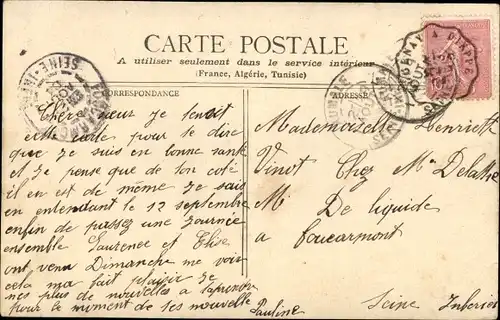 CARTE POSTALE
A utiliser seulement dans le service intérieur
(France, Algérie, Tunisie)
CORRESPONDANCE
ADRESSE
Chère sœur je t'écrit
cette carte pour te dire
que je suis en bonne santé
et je pense que de ton coté
il en est de même je sais
en entendant le 12 septembre
enfin de passez une journée
ensemble Laurence et Elise
ont venu Dimanche me voir
cela ma fait plaisir je
nes plus de nouvelles a taprendre
pour le moment de tes nouvelle
Pauline
Mademoiselle Henriette
Vinot Chez Mr Delattre
M De liquide
a Foucarmont
Seine Inferieu